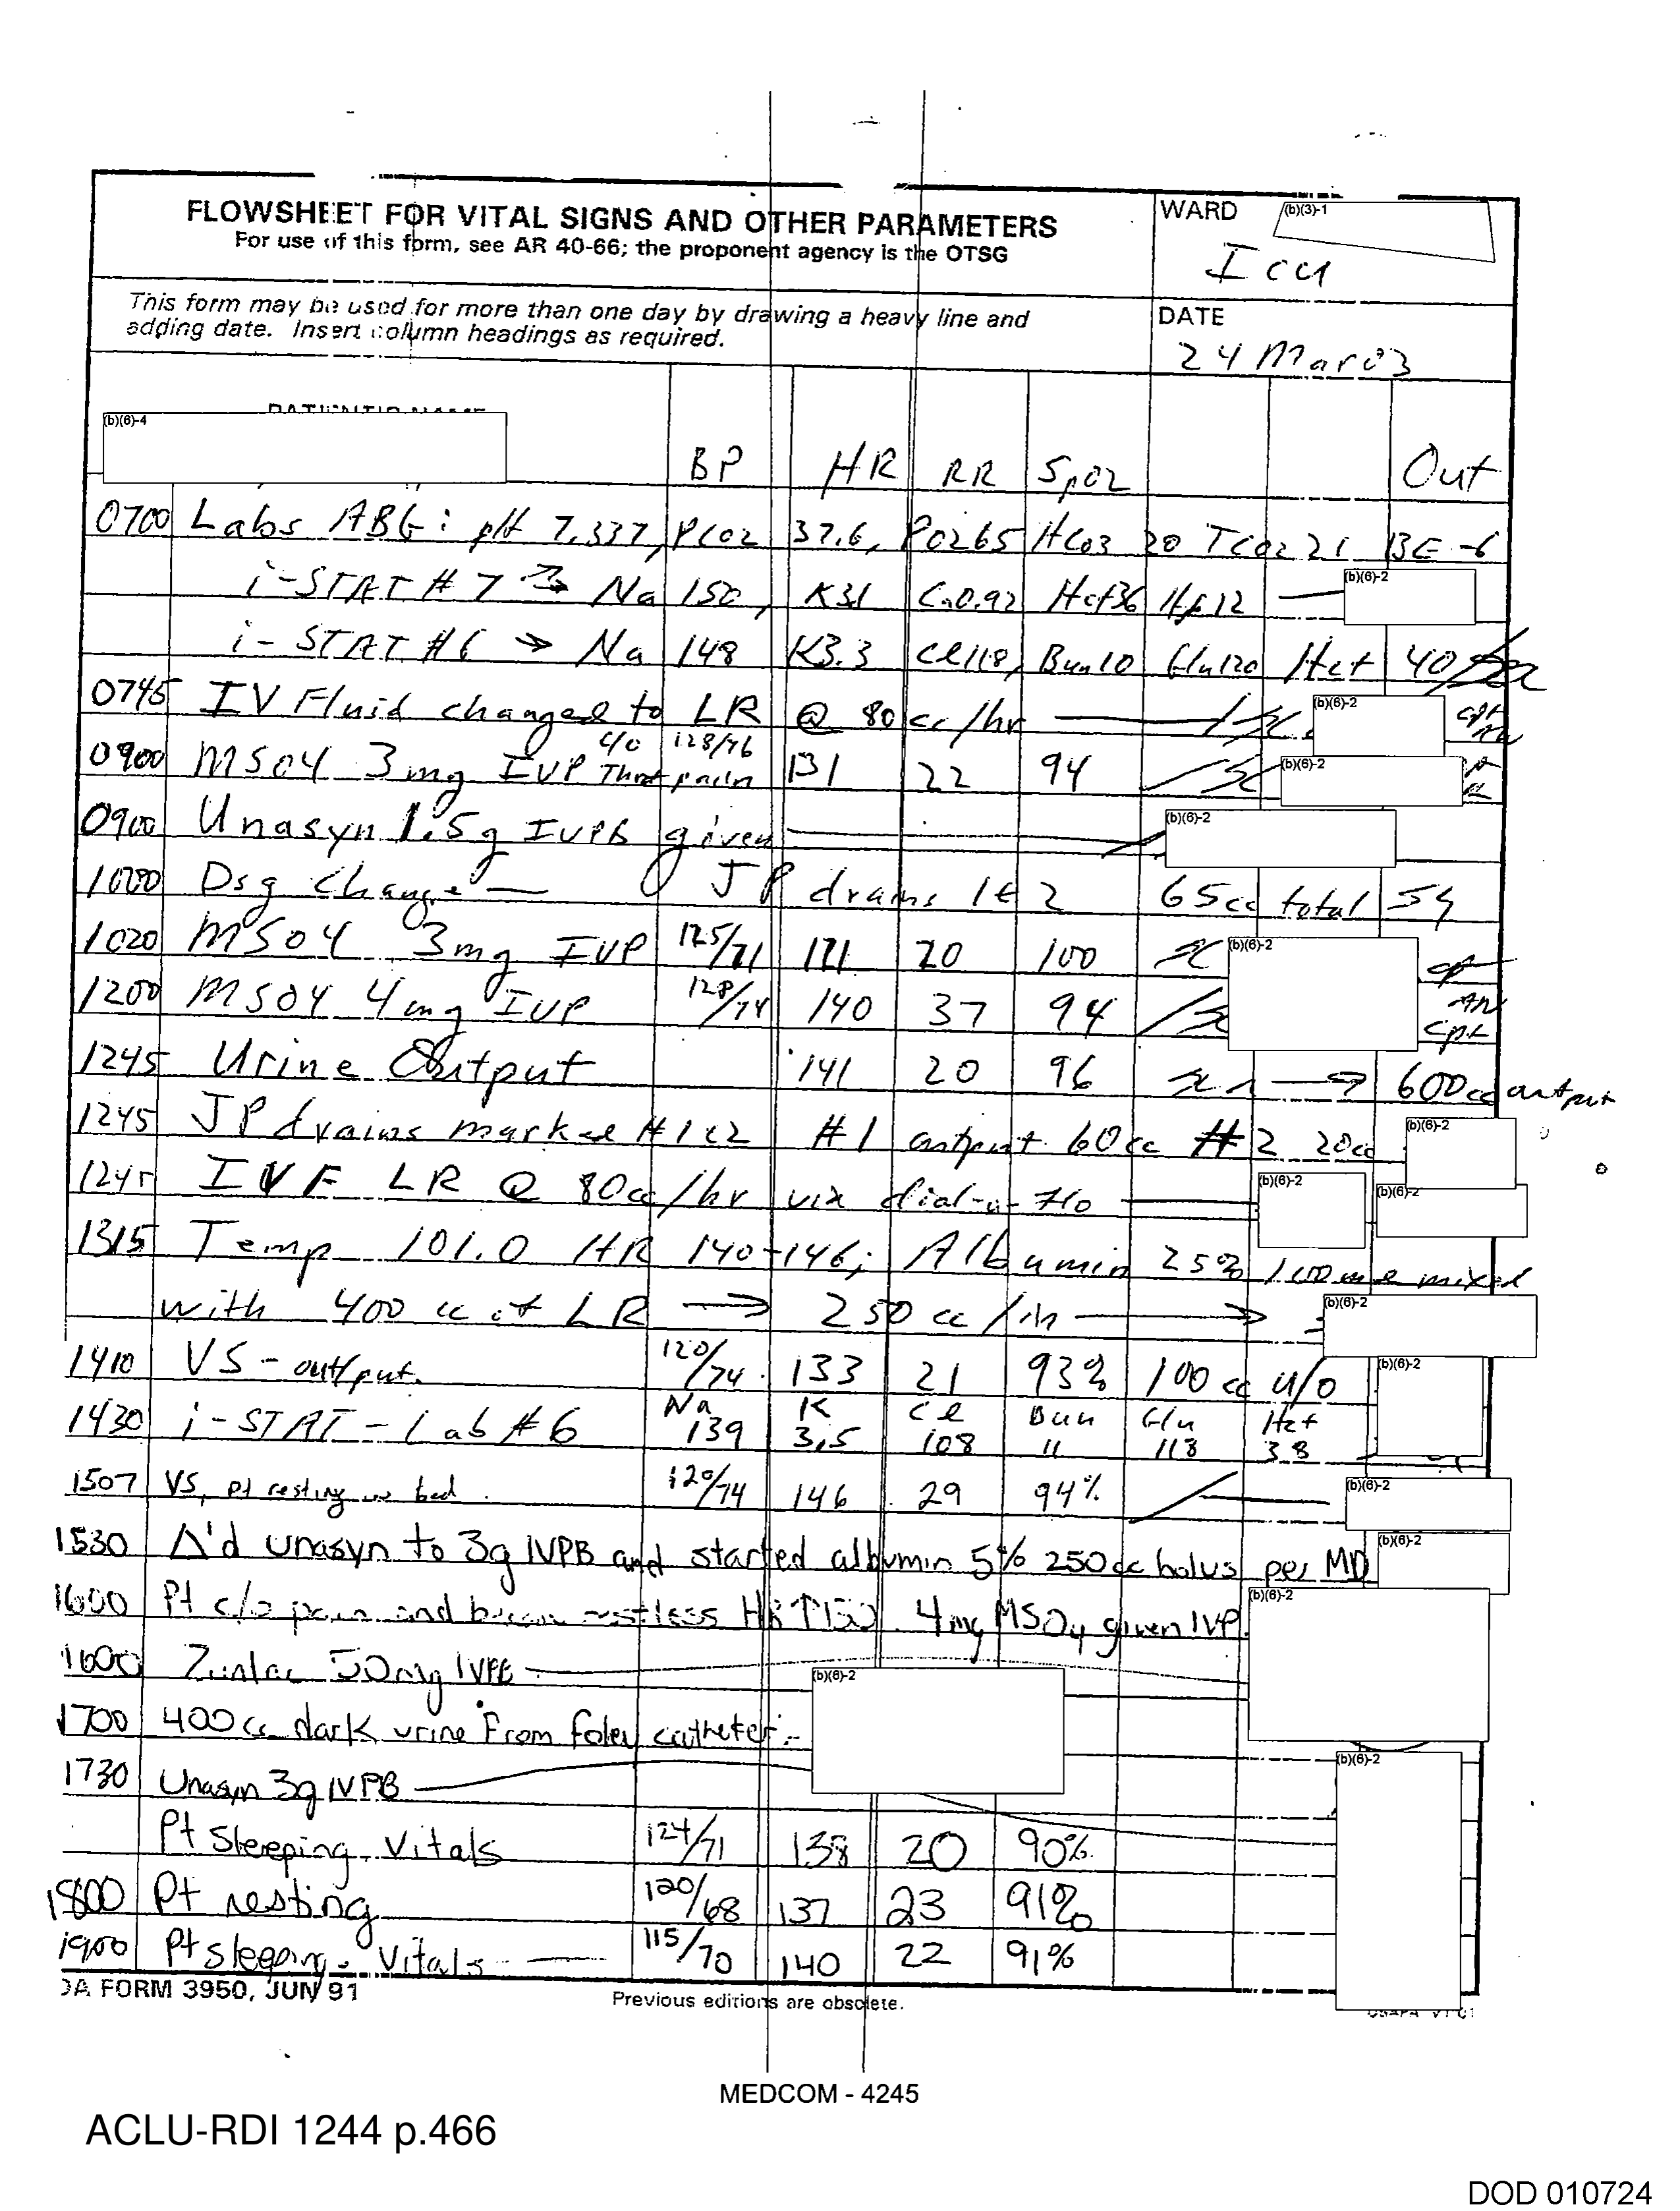 FLOWSHEET FOR VITAL SIGNS AND OTHER PARAMETERS
For use of this form, see AR 40-66; the proponent agency is the OTSG
WARD (b)(3)-1
ICU
This form may be used for more than one day by drawing a heavy line and
adding date. Insert column headings as required.
DATE
24 Mar 03
(b)(6)-4
BP HR RR SpO2 Out
0700 Labs ABG: pH 7.337, PCO2 37.6, PO2 65 HCO3 20 TCO2 21 BE -6
i-STAT # 7 → Na 150, K 3.1 Ca 0.92 Hct 36 Hgb 12 (b)(6)-2
i-STAT #6 → Na 148 K3.3 Cl 118, Bun 10 Glu 120 Hct 40
0745 IV Fluid changed to LR @ 80 cc/hr (b)(6)-2 cpt AN
0900 MSO4 3mg IVP c/o Throt pain 128/76 131 22 94 (b)(6)-2
0900 Unasyn 1.5g IVPB given (b)(6)-2
1000 Dsg change — JP drains 1 & 2 65cc total
1020 MSO4 3mg IVP 125/71 20 100 (b)(6)-2
1200 MSO4 4mg IVP 128/74 140 37 94 AN cpt
1245 Urine Output 141 20 96 → 600cc output
1245 JP drains marked #1 & 2 #1 output 60cc #2 20cc (b)(6)-2
1245 IVF LR @ 80cc/hr via dial-a-flo (b)(6)-2 (b)(6)-2
1315 Temp 101.0 HR 140-146; Albumin 25% 100 mixed
with 400 cc of LR → 250 cc/hr → (b)(6)-2
1410 VS - output 120/74 133 21 93% 100 cc u/o (b)(6)-2
1430 i-STAT - Lab #6 Na 139 K 3.5 Cl 108 Bun 11 Glu 113 Hct 38
1507 VS, pt resting in bed 120/74 146 29 94% (b)(6)-2
1530 Δ'd unasyn to 3g IVPB and started albumin 5% 250cc bolus per MD (b)(6)-2
1600 Pt c/o pain and became restless HR ↑150. 4mg MSO4 given IVP. (b)(6)-2
1600 Zantac 50mg IVPB (b)(6)-2
1700 400cc dark urine from foley catheter
1730 Unasyn 3g IVPB (b)(6)-2
Pt sleeping. Vitals 124/71 138 20 90%
1800 Pt resting 120/68 137 23 91%
1900 Pt sleeping. Vitals — 115/70 140 22 91%
DA FORM 3950, JUN 91
Previous editions are obsolete.
USAPA V1.01
MEDCOM - 4245
ACLU-RDI 1244 p.466
DOD 010724